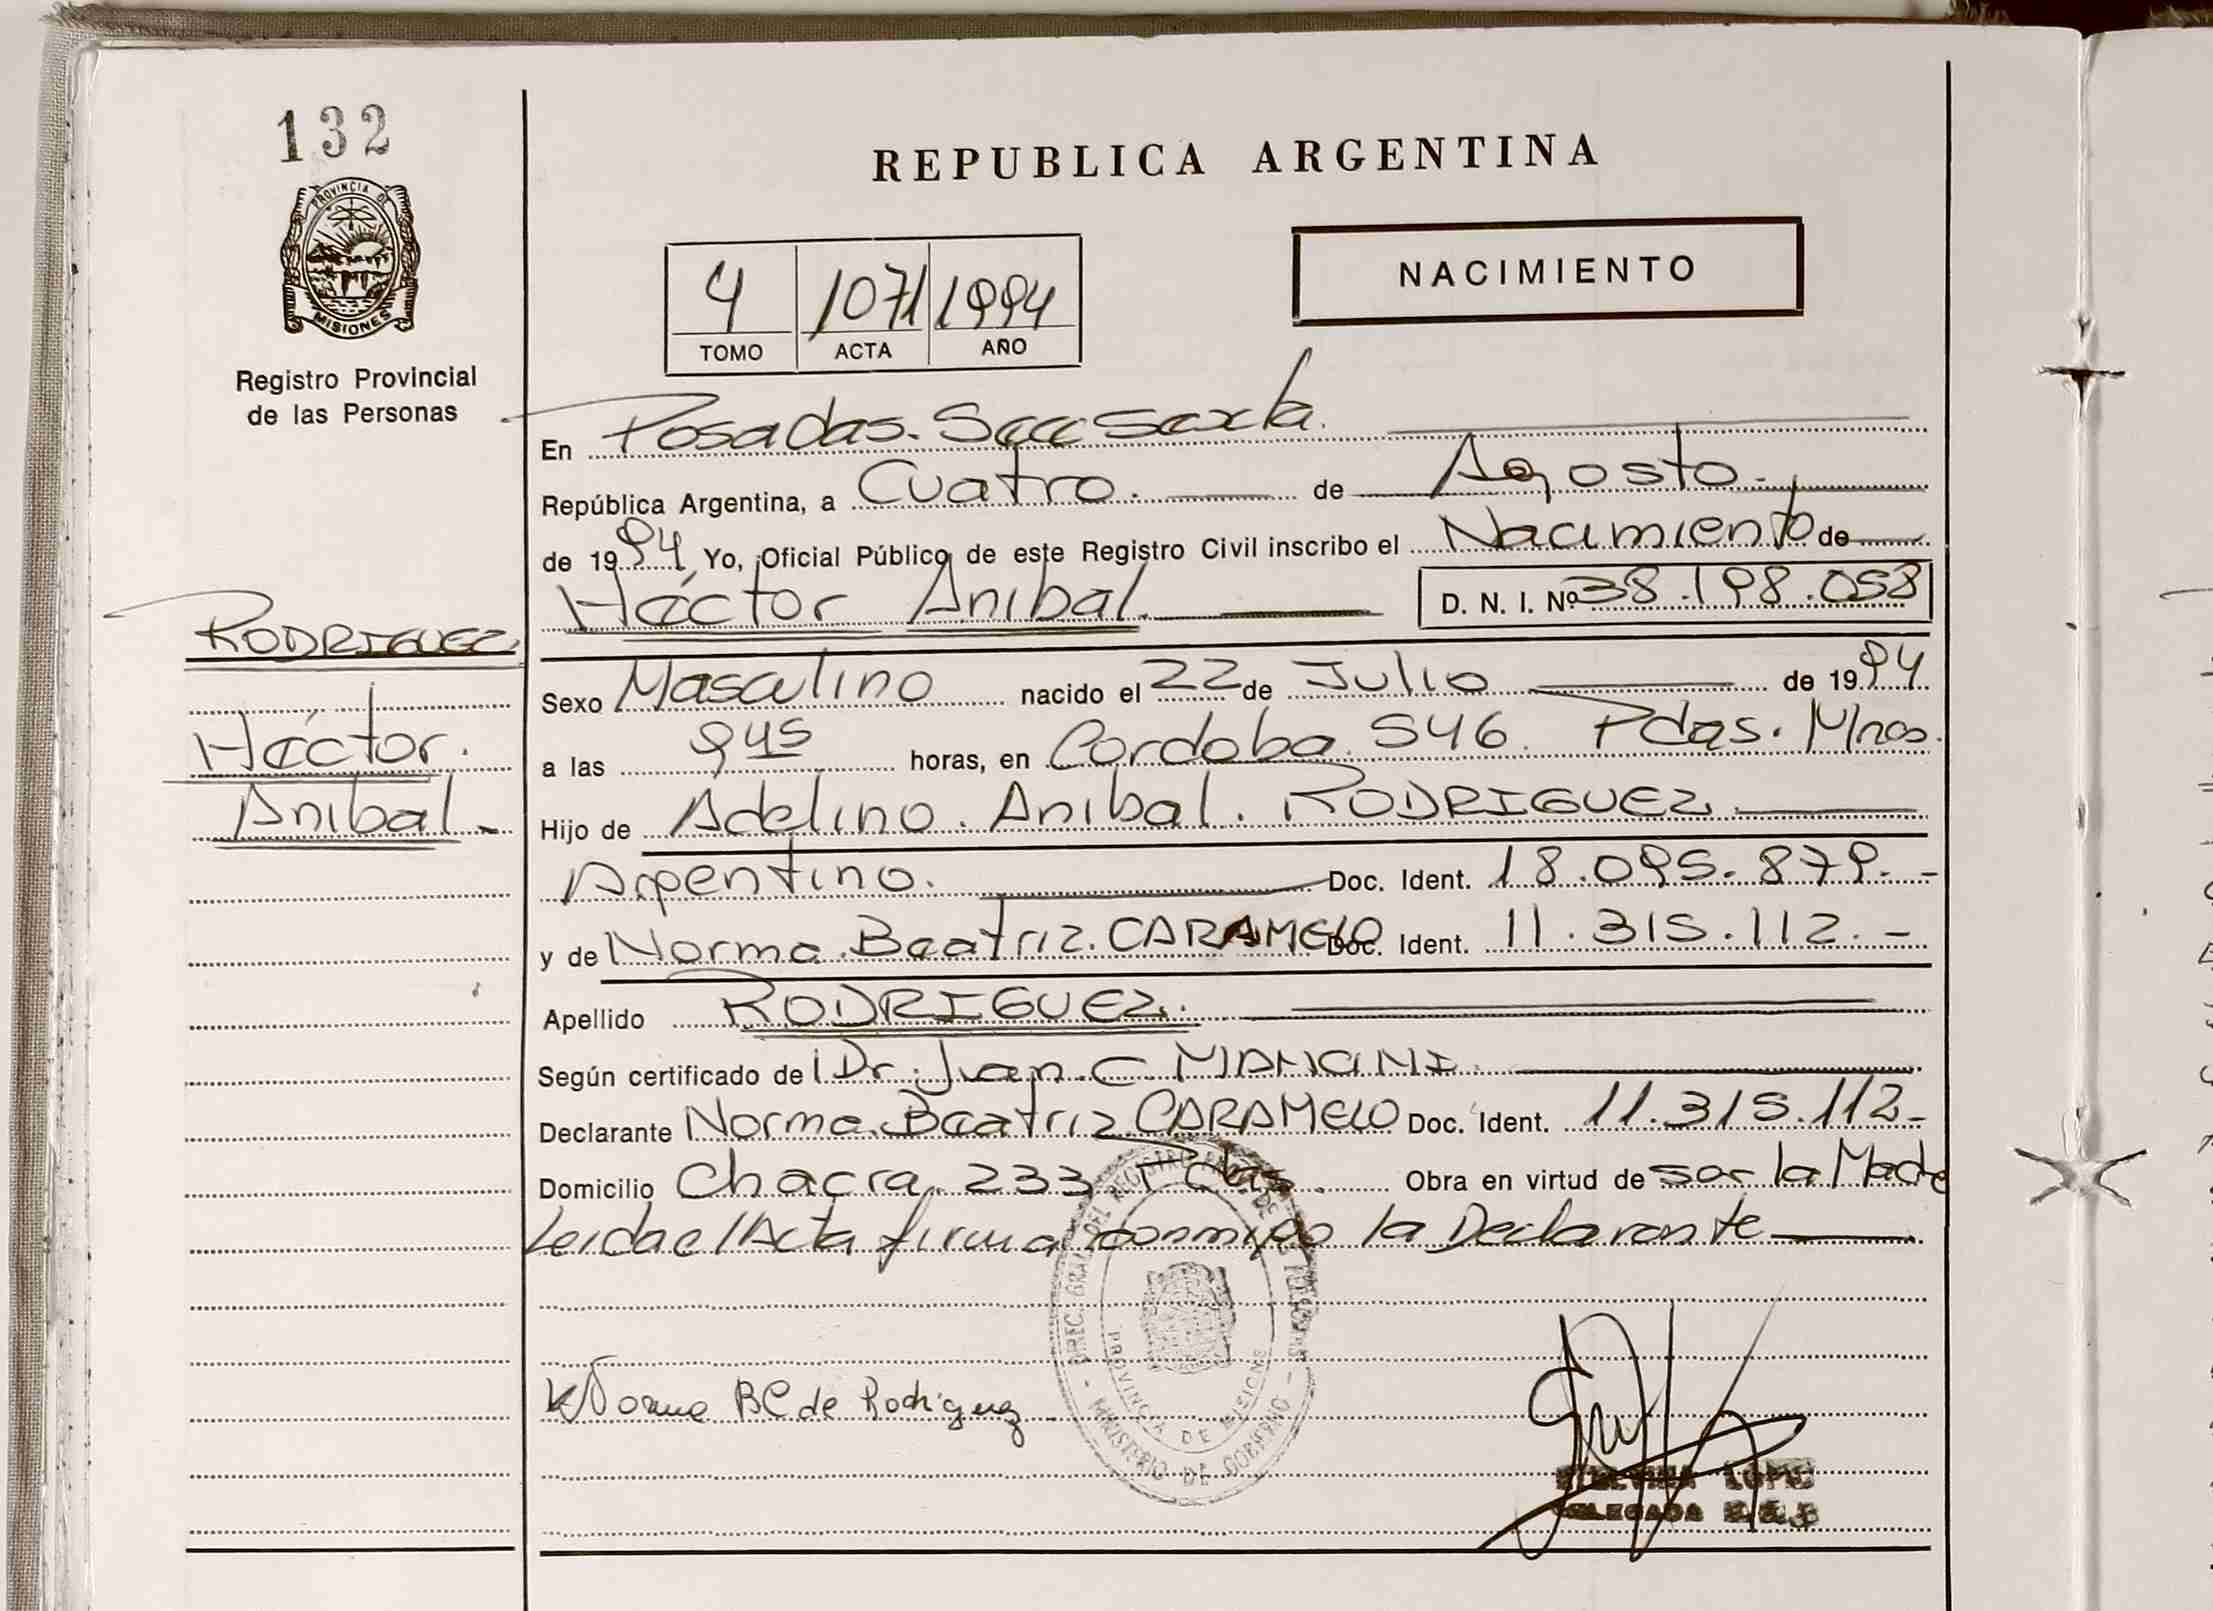 132
PROVINCIA DE
MISIONES
Registro Provincial
de las Personas
RODRIGUEZ
Héctor.
Anibal.-
REPUBLICA ARGENTINA
NACIMIENTO
4 1071 1994
TOMO ACTA AÑO
En Posadas. Secc Sexta.
República Argentina, a Cuatro. de Agosto.-
de 1994 Yo, Oficial Público de este Registro Civil inscribo el Nacimiento de
Héctor Anibal. D. N. I. Nº 38.198.058
Sexo Masculino nacido el 22 de Julio de 1994
a las 945 horas, en Cordoba. 546. Pdas. Mnes.
Hijo de Adelino. Anibal. RODRIGUEZ
Argentino. Doc. Ident. 18.095.879.-
y de Norma. Beatriz. CARAMELO Doc. Ident. 11.315.112.-
Apellido RODRIGUEZ.
Según certificado de Dr. Juan. C. MAMANI.
Declarante Norma. Beatriz CARAMELO Doc. Ident. 11.315.112-
Domicilio Chacra 233 Pdas. Obra en virtud de ser la Madre
Leida el Acta firma conmigo la Declarante
DIREC. GRAL. DEL REGISTRO DE LAS PERSONAS
PROVINCIA DE MISIONES
- MINISTERIO DE GOBIERNO -
Norma BC de Rodriguez
LOPEZ
DELEGADA